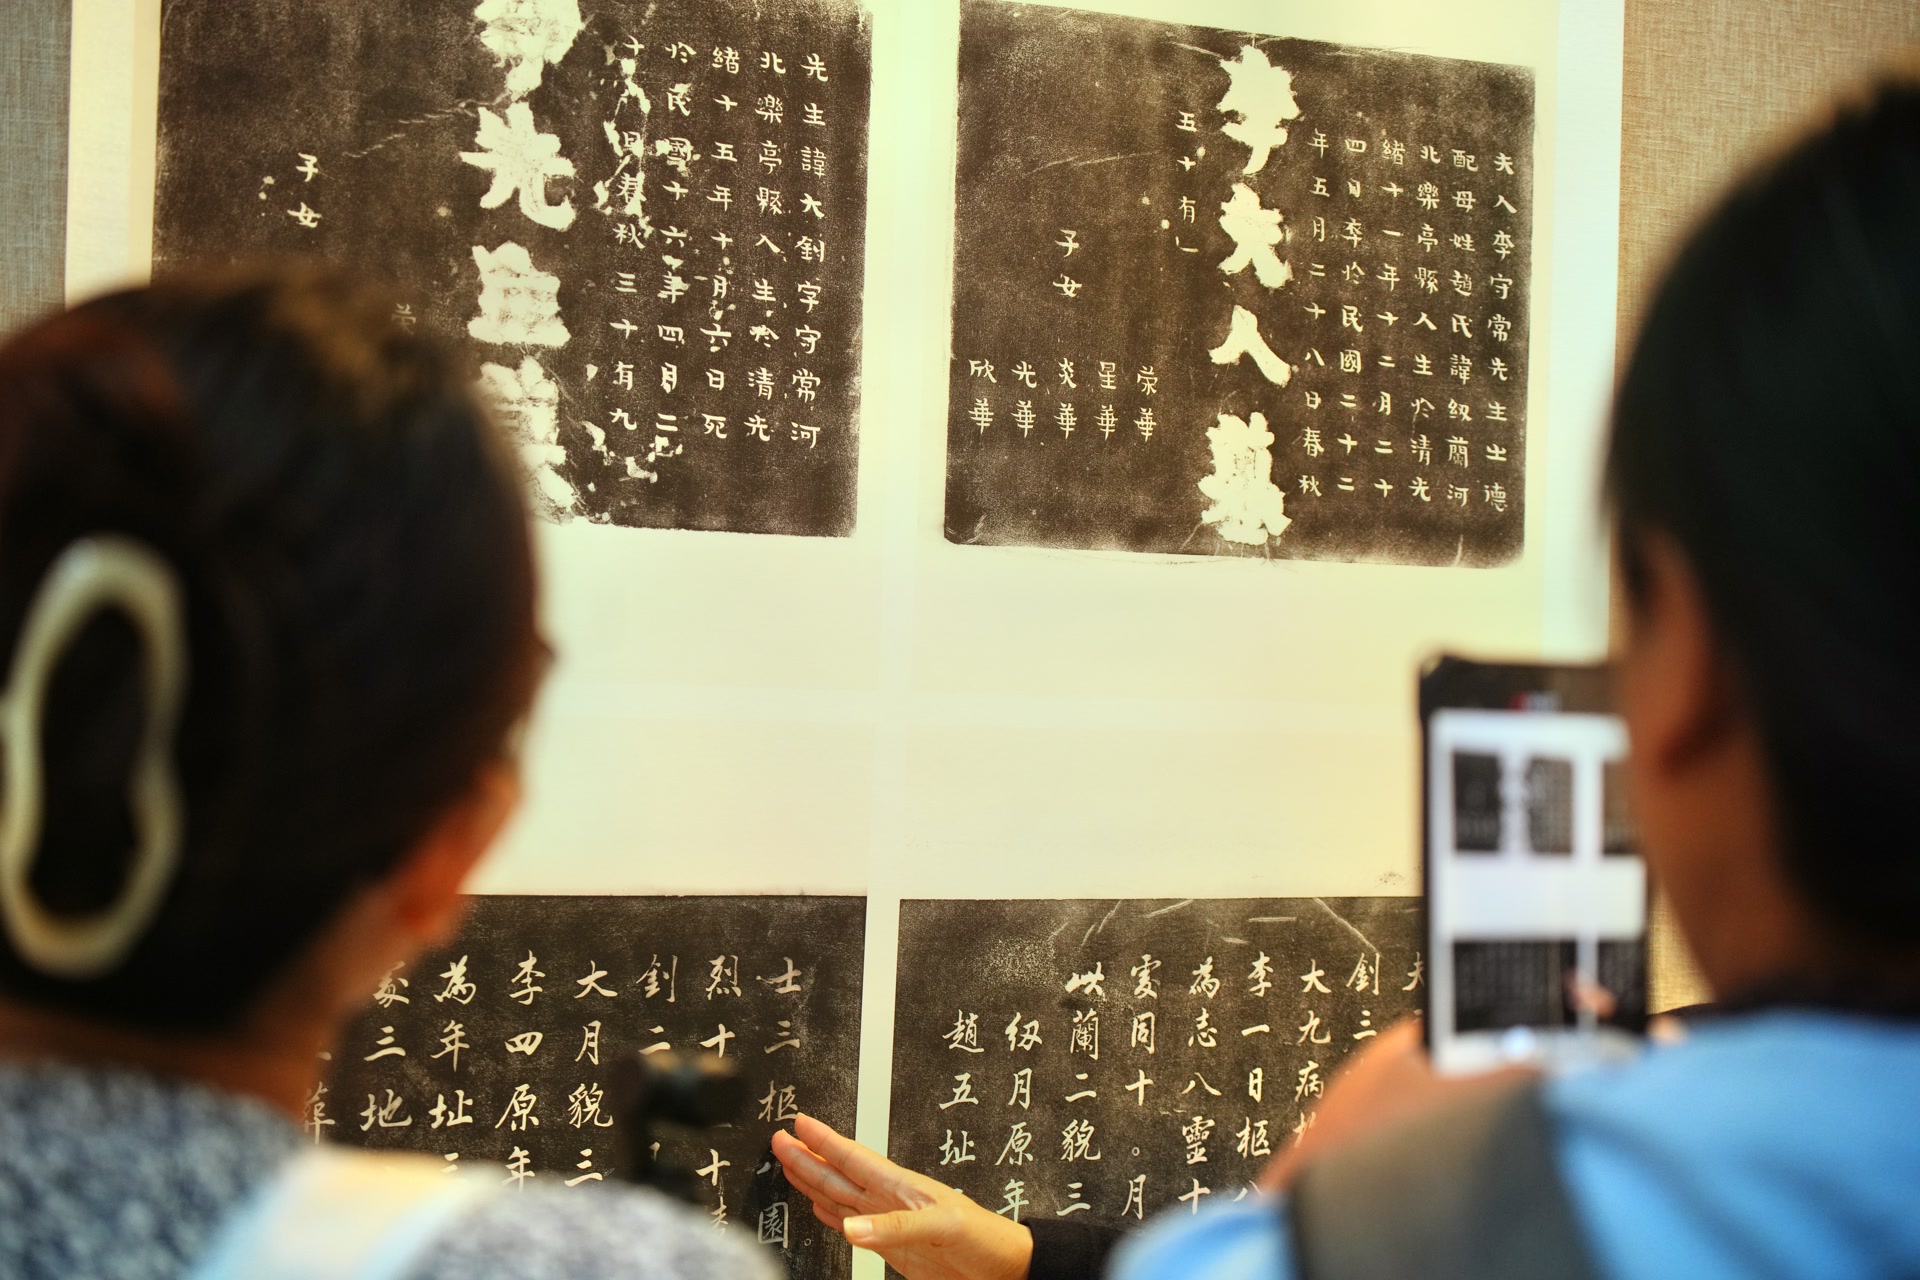 先生諱大釗字守常河
北樂亭縣人生於清光
緒十五年十月六日死
於民國十六年四月二
十日春秋三十有九
李先生墓
子女
夫人李守常先生之德
配母姓趙氏諱紉蘭河
北樂亭縣人生於清光
緒十一年十二月二十
四日卒於民國二十二
年五月二十八日春秋
李夫人墓
五十有一
子女
荣華
星華
炎華
光華
欣華
士三柩園。
烈十一十李
釗二
大月貌三
李四原年
為年址三
冢三地
葬
夫
釗三
大九病
李一日柩八
為志八靈十
處同十。月
蘭二貌三
紉月原年
趙五址